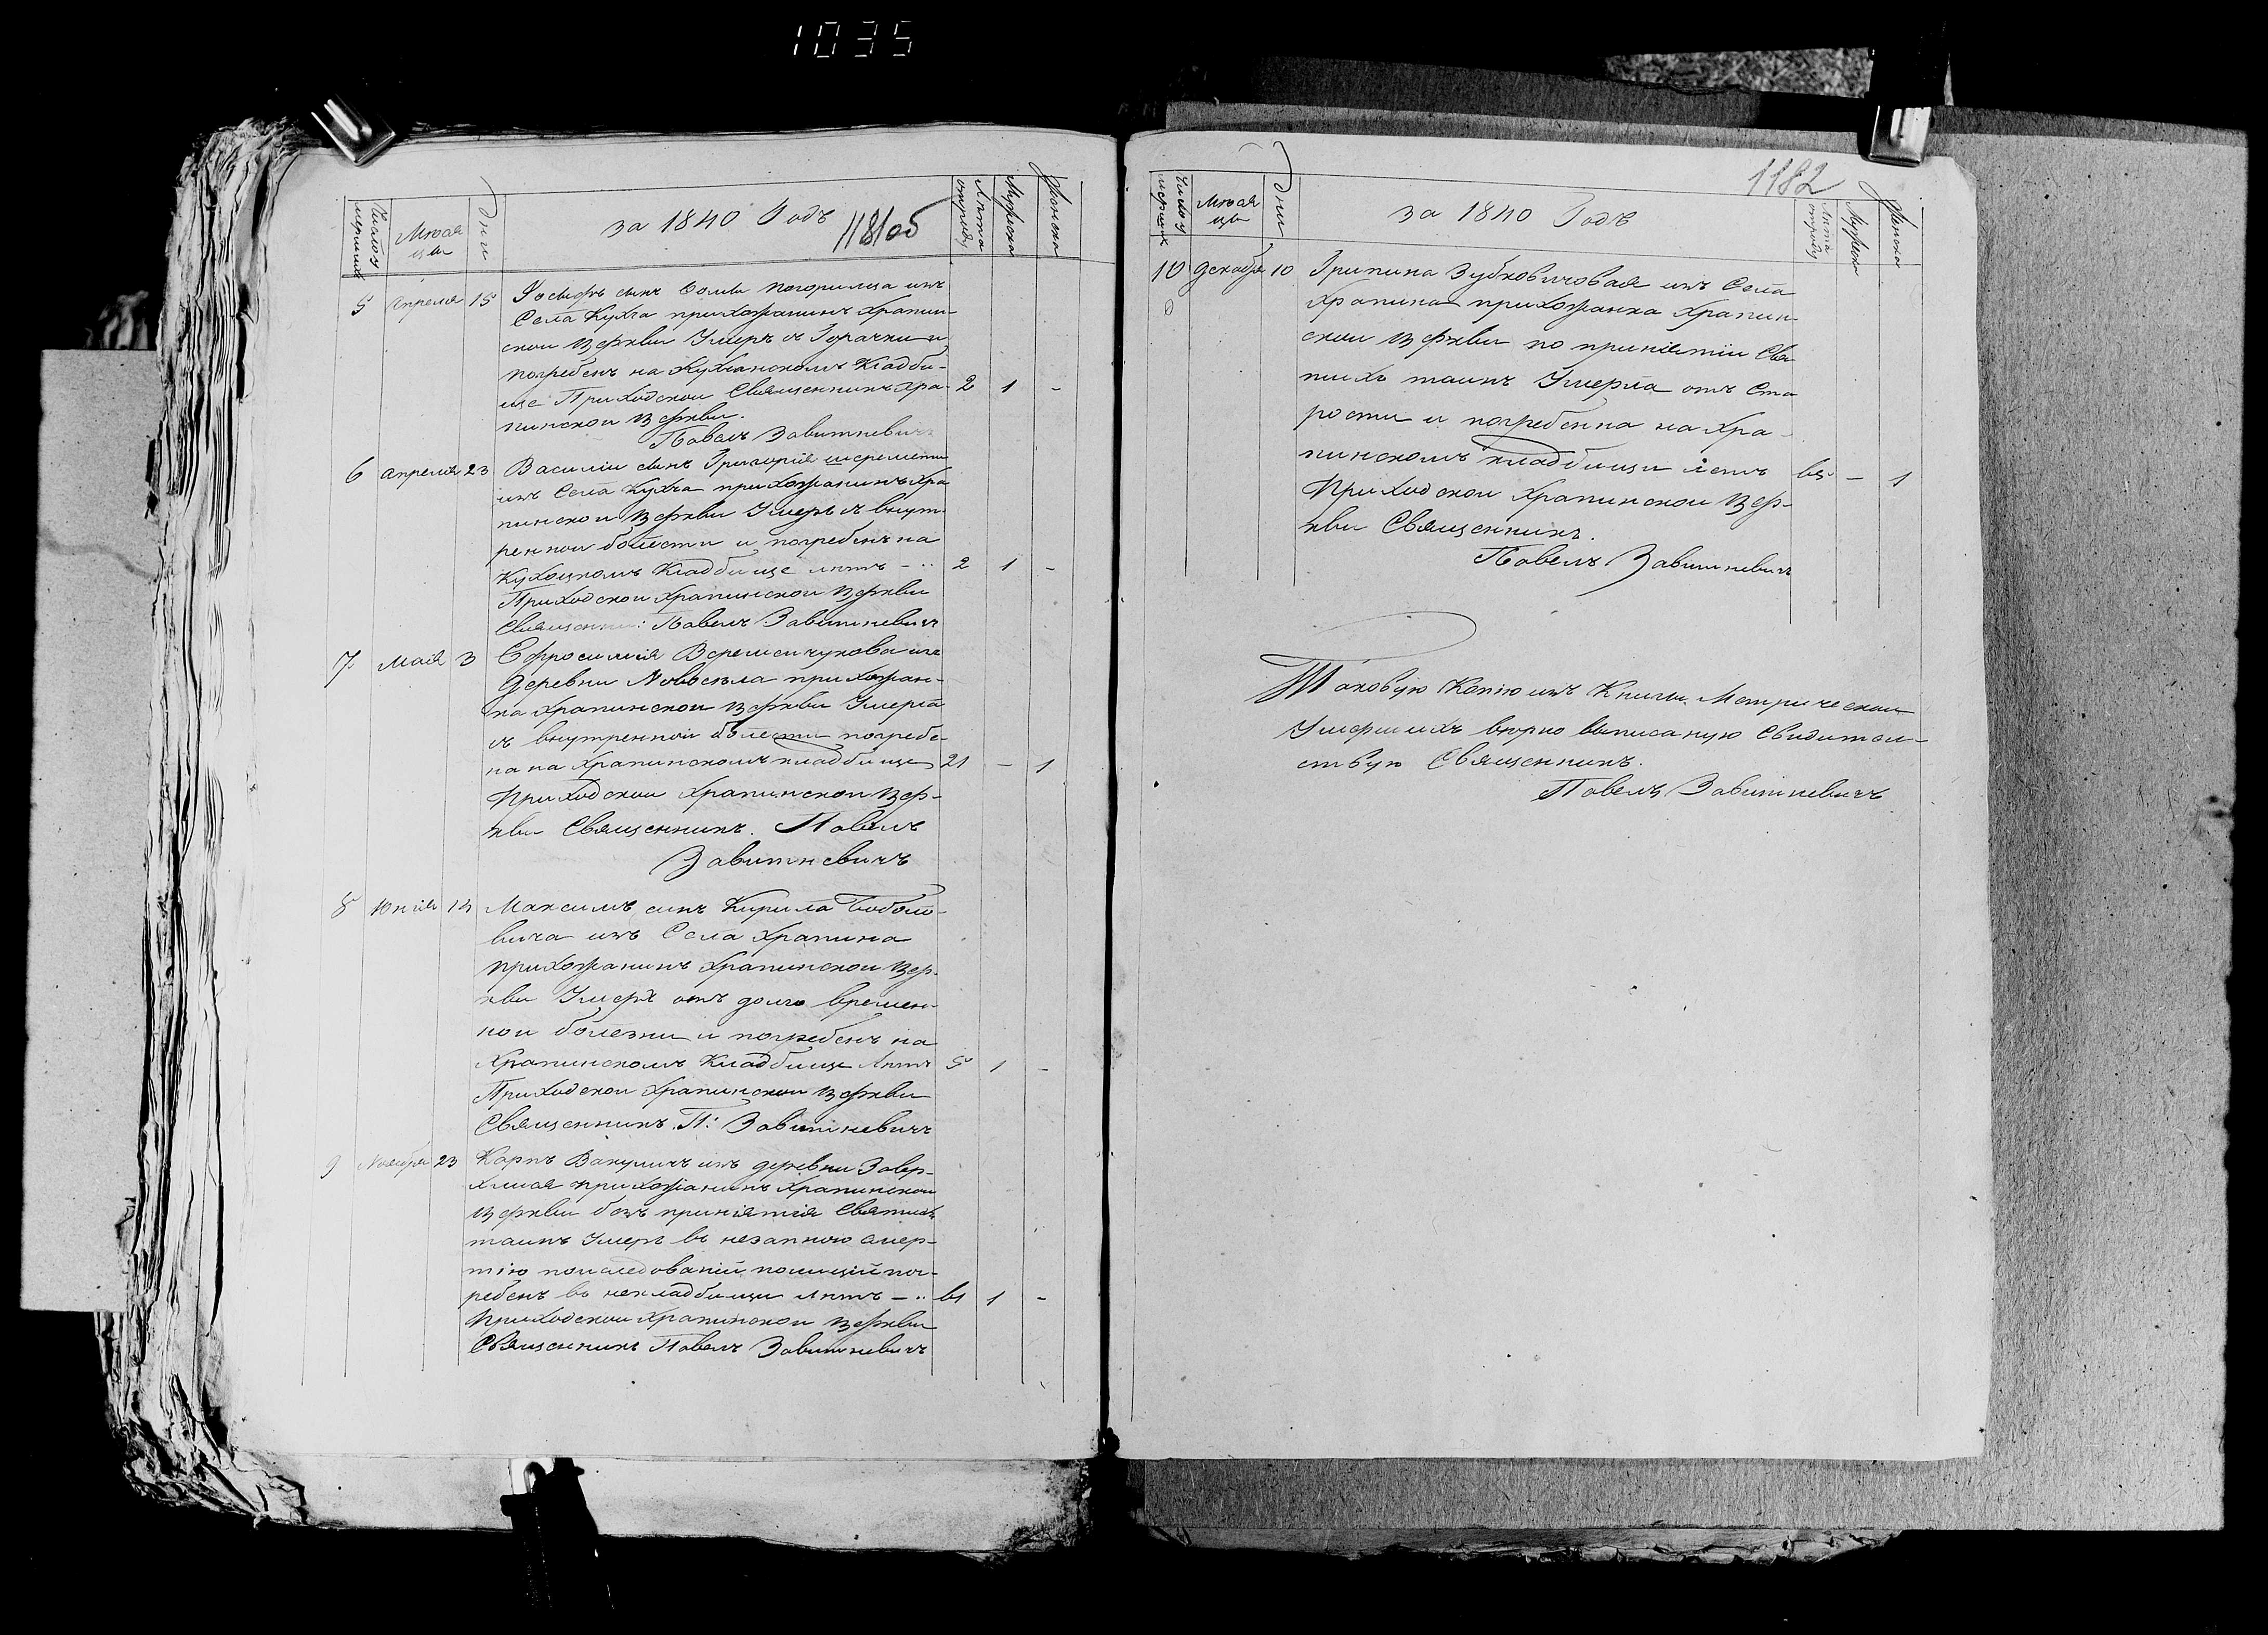 1035
Число умершихъ
Мѣсяцы
Дни
за 1840 Годъ
1181об
Лѣта отроду
Мужеска
Женска
5 Апреля 15 Іосифъ сынъ Сомы погорильца изъ
Села Кухча прихожанинъ Храпин-
ской Церкви Умеръ съ Горачки и
погребенъ на Кухчанскомъ Кладби-
ще Приходской Священникъ Хра- 2 1 -
пинской Церкви.
Павелъ Завитневичъ
6 Апреля 23 Василій сынъ Григорія шеремети
изъ Села Кухча прихожанинъ Хра
пинской Церкви Умеръ съ внут-
ренной болести и погребенъ на
Кухоцкомъ Кладбище лѣтъ - 2 1 -
Приходской Храпинской Церкви
Священни: Павелъ Завитневичъ
7 Маія 3 Ефросинія Веремейчукова изъ
Деревни Новосѣла прихожан-
ка Храпинской Церкви Умерла
съ внутренной болести погребе-
на на Храпинскомъ кладбище 21 - 1
Приходской Храпинской Цер-
кви Священникъ. Павелъ
Завитневичъ
8 Юнія 14 Максимъ сынъ Кирила Боболо-
вича изъ Села Храпина
прихожанинъ Храпинской Цер-
кви Умеръ отъ долго времен-
ной болезни и погребенъ на
Храпинскомъ Кладбище Лѣтъ 5 1 -
Приходской Храпинской Церкви
Священникъ. П: Завитневичъ
9 Ноября 23 Карпъ Вакуличъ изъ деревни Завер-
прихожанинъ Храпинской
Церкви безъ принятія Святыхъ
таинъ Умеръ въ незапною смер-
тію послѣдованій полиціи пог-
ребенъ въ некладбищи лѣтъ - 61 1 -
Приходской Храпинской Церкви
Священникъ Павелъ Завитневичъ
1182
Число умершихъ
Мѣсяцы
Дни
за 1840 Годъ
Лѣта отроду
Мужеска
Женска
10 Декабря 10 Грипина Зубковичовая изъ Села
Храпина прихожанка Храпин-
ской Церкви по принятіи Свя
тихъ таинъ Умерла отъ Ста
рости и погребенна на Хра-
пинскомъ кладбищи летъ 65 - 1
Приходской Храпинской Цер-
кви Священникъ.
Павелъ Завитневичъ
Таковую Копію изъ Книги Метрической
Умершихъ верно выписаную Свидител-
ствую Священникъ.
Павелъ Завитневичъ